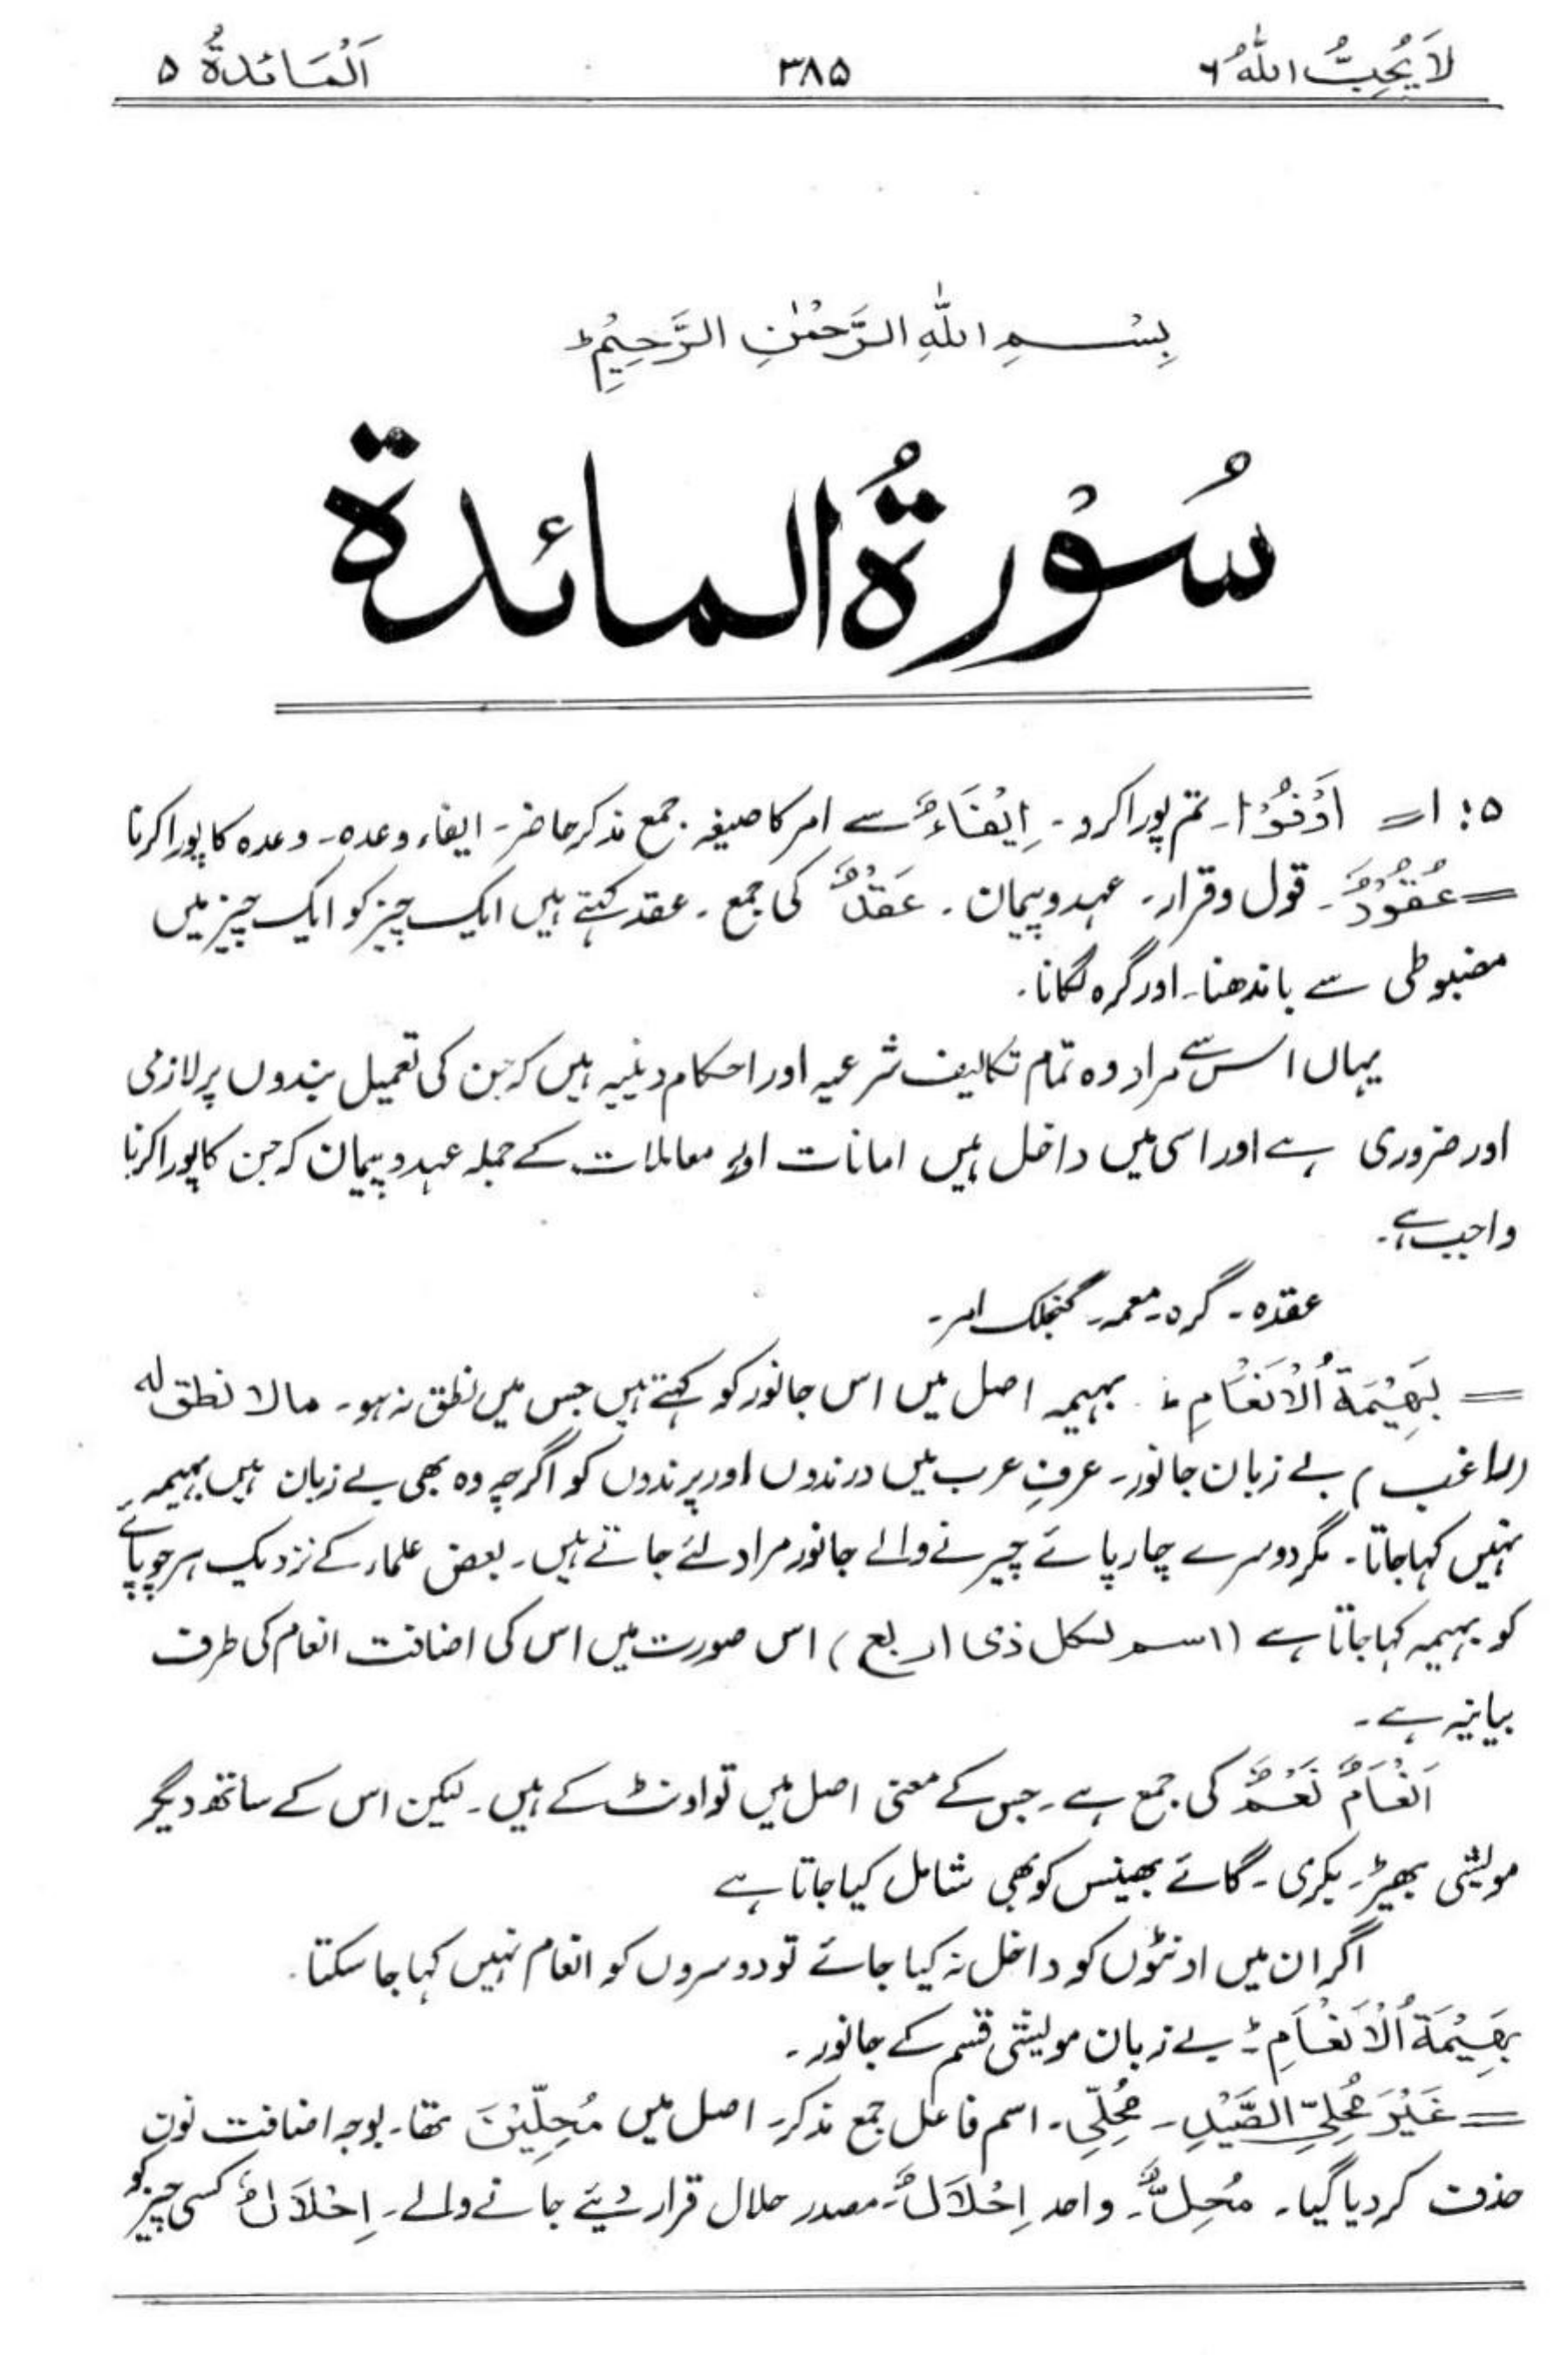 لَا یُحِبُّ اللّٰہُ ۶
۳۸۵
اَلْمَائدۃُ ۵
بِسْمِ اللّٰہِ الرَّحْمٰنِ الرَّحِیْمِ ط
سُوْرۃُ المائدۃ
۵: ۱= اَوْفُوْا۔ تم پورا کرو۔ اِیْفَاءٌ سے امر کا صیغہ جمع مذکر حاضر۔ ایفاء وعدہ۔ وعدہ کا پورا کرنا
= عُقُوْدٌ۔ قول و قرار۔ عہد و پیمان۔ عَقْدٌ کی جمع۔ عقد کہتے ہیں ایک چیز کو ایک چیز میں
مضبوطی سے باندھنا۔ اور گرہ لگانا۔
یہاں اس سے مراد وہ تمام تکالیف شرعیہ اور احکام دینیہ ہیں کہ جن کی تعمیل بندوں پر لازمی
اور ضروری ہے اور اسی میں داخل ہیں امانات اور معاملات کے جملہ عہد و پیمان کہ جن کا پورا کرنا
واجب ہے۔
عقدہ۔ گرہ۔ معمہ۔ گنجلک امر۔
= بَھِیْمَۃُ الْاَنْعَامِ ط۔ بہیمہ اصل میں اس جانور کو کہتے ہیں جس میں نطق نہ ہو۔ مالا نطق لہ
(الراغب) بے زبان جانور۔ عرفِ عرب میں درندوں اور پرندوں کو اگرچہ وہ بھی بے زبان ہیں بہیمہ
نہیں کہا جاتا۔ مگر دوسرے چار پائے چیرنے والے جانور مراد لئے جاتے ہیں۔ بعض علماء کے نزدیک ہر چوپائے
کو بہیمہ کہا جاتا ہے (اسم لکل ذی اربع) اس صورت میں اس کی اضافت انعام کی طرف
بیانیہ ہے۔
اَنْعَامٌ نَعَمٌ کی جمع ہے۔ جس کے معنی اصل میں تو اونٹ کے ہیں۔ لیکن اس کے ساتھ دیگر
مولیشی بھیڑ۔ بکری۔ گائے بھینس کو بھی شامل کیا جاتا ہے
اگر ان میں اونٹوں کو داخل نہ کیا جائے تو دوسروں کو انعام نہیں کہا جا سکتا۔
بَھِیْمَۃُ الْاَنْعَامِ ط بے زبان مولیشی قسم کے جانور۔
= غَیْرَ مُحِلِّی الصَّیْدِ۔ مُحِلِّی۔ اسم فاعل جمع مذکر۔ اصل میں مُحِلِّیْنَ تھا۔ بوجہ اضافت نون
حذف کر دیا گیا۔ مُحِلٌّ۔ واحد اِحْلَالٌ۔ مصدر حلال قرار دیئے جانے والے۔ اِحْلَالٌ کسی چیز کو